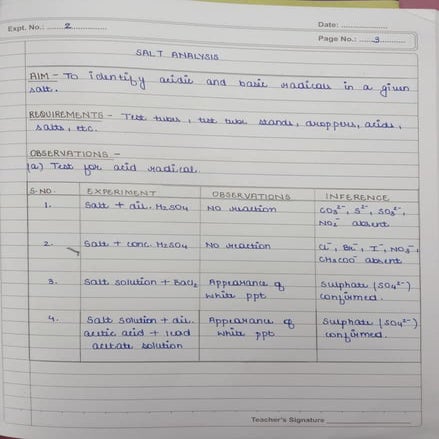 Expt. No.: 2
Date:
Page No.: 3
SALT ANALYSIS
AIM - To identify acidic and basic radicals in a given
salt.
REQUIREMENTS - Test tubes, test tube stands, droppers, acids,
salts, etc.
OBSERVATIONS -
(a) Test for acid radical.
S.NO. EXPERIMENT OBSERVATIONS INFERENCE
1. Salt + dil. H₂SO₄ NO reaction CO₃²⁻, S²⁻, SO₃²⁻,
NO₂⁻ absent
2. Salt + conc. H₂SO₄ NO reaction Cl⁻, Br⁻, I⁻, NO₃⁻,
CH₃COO⁻ absent
3. Salt solution + BaCl₂ Appearance of Sulphate (SO₄²⁻)
white ppt confirmed.
4. Salt solution + dil. Appearance of Sulphate (SO₄²⁻)
acetic acid + lead white ppt confirmed.
acetate solution
Teacher's Signature